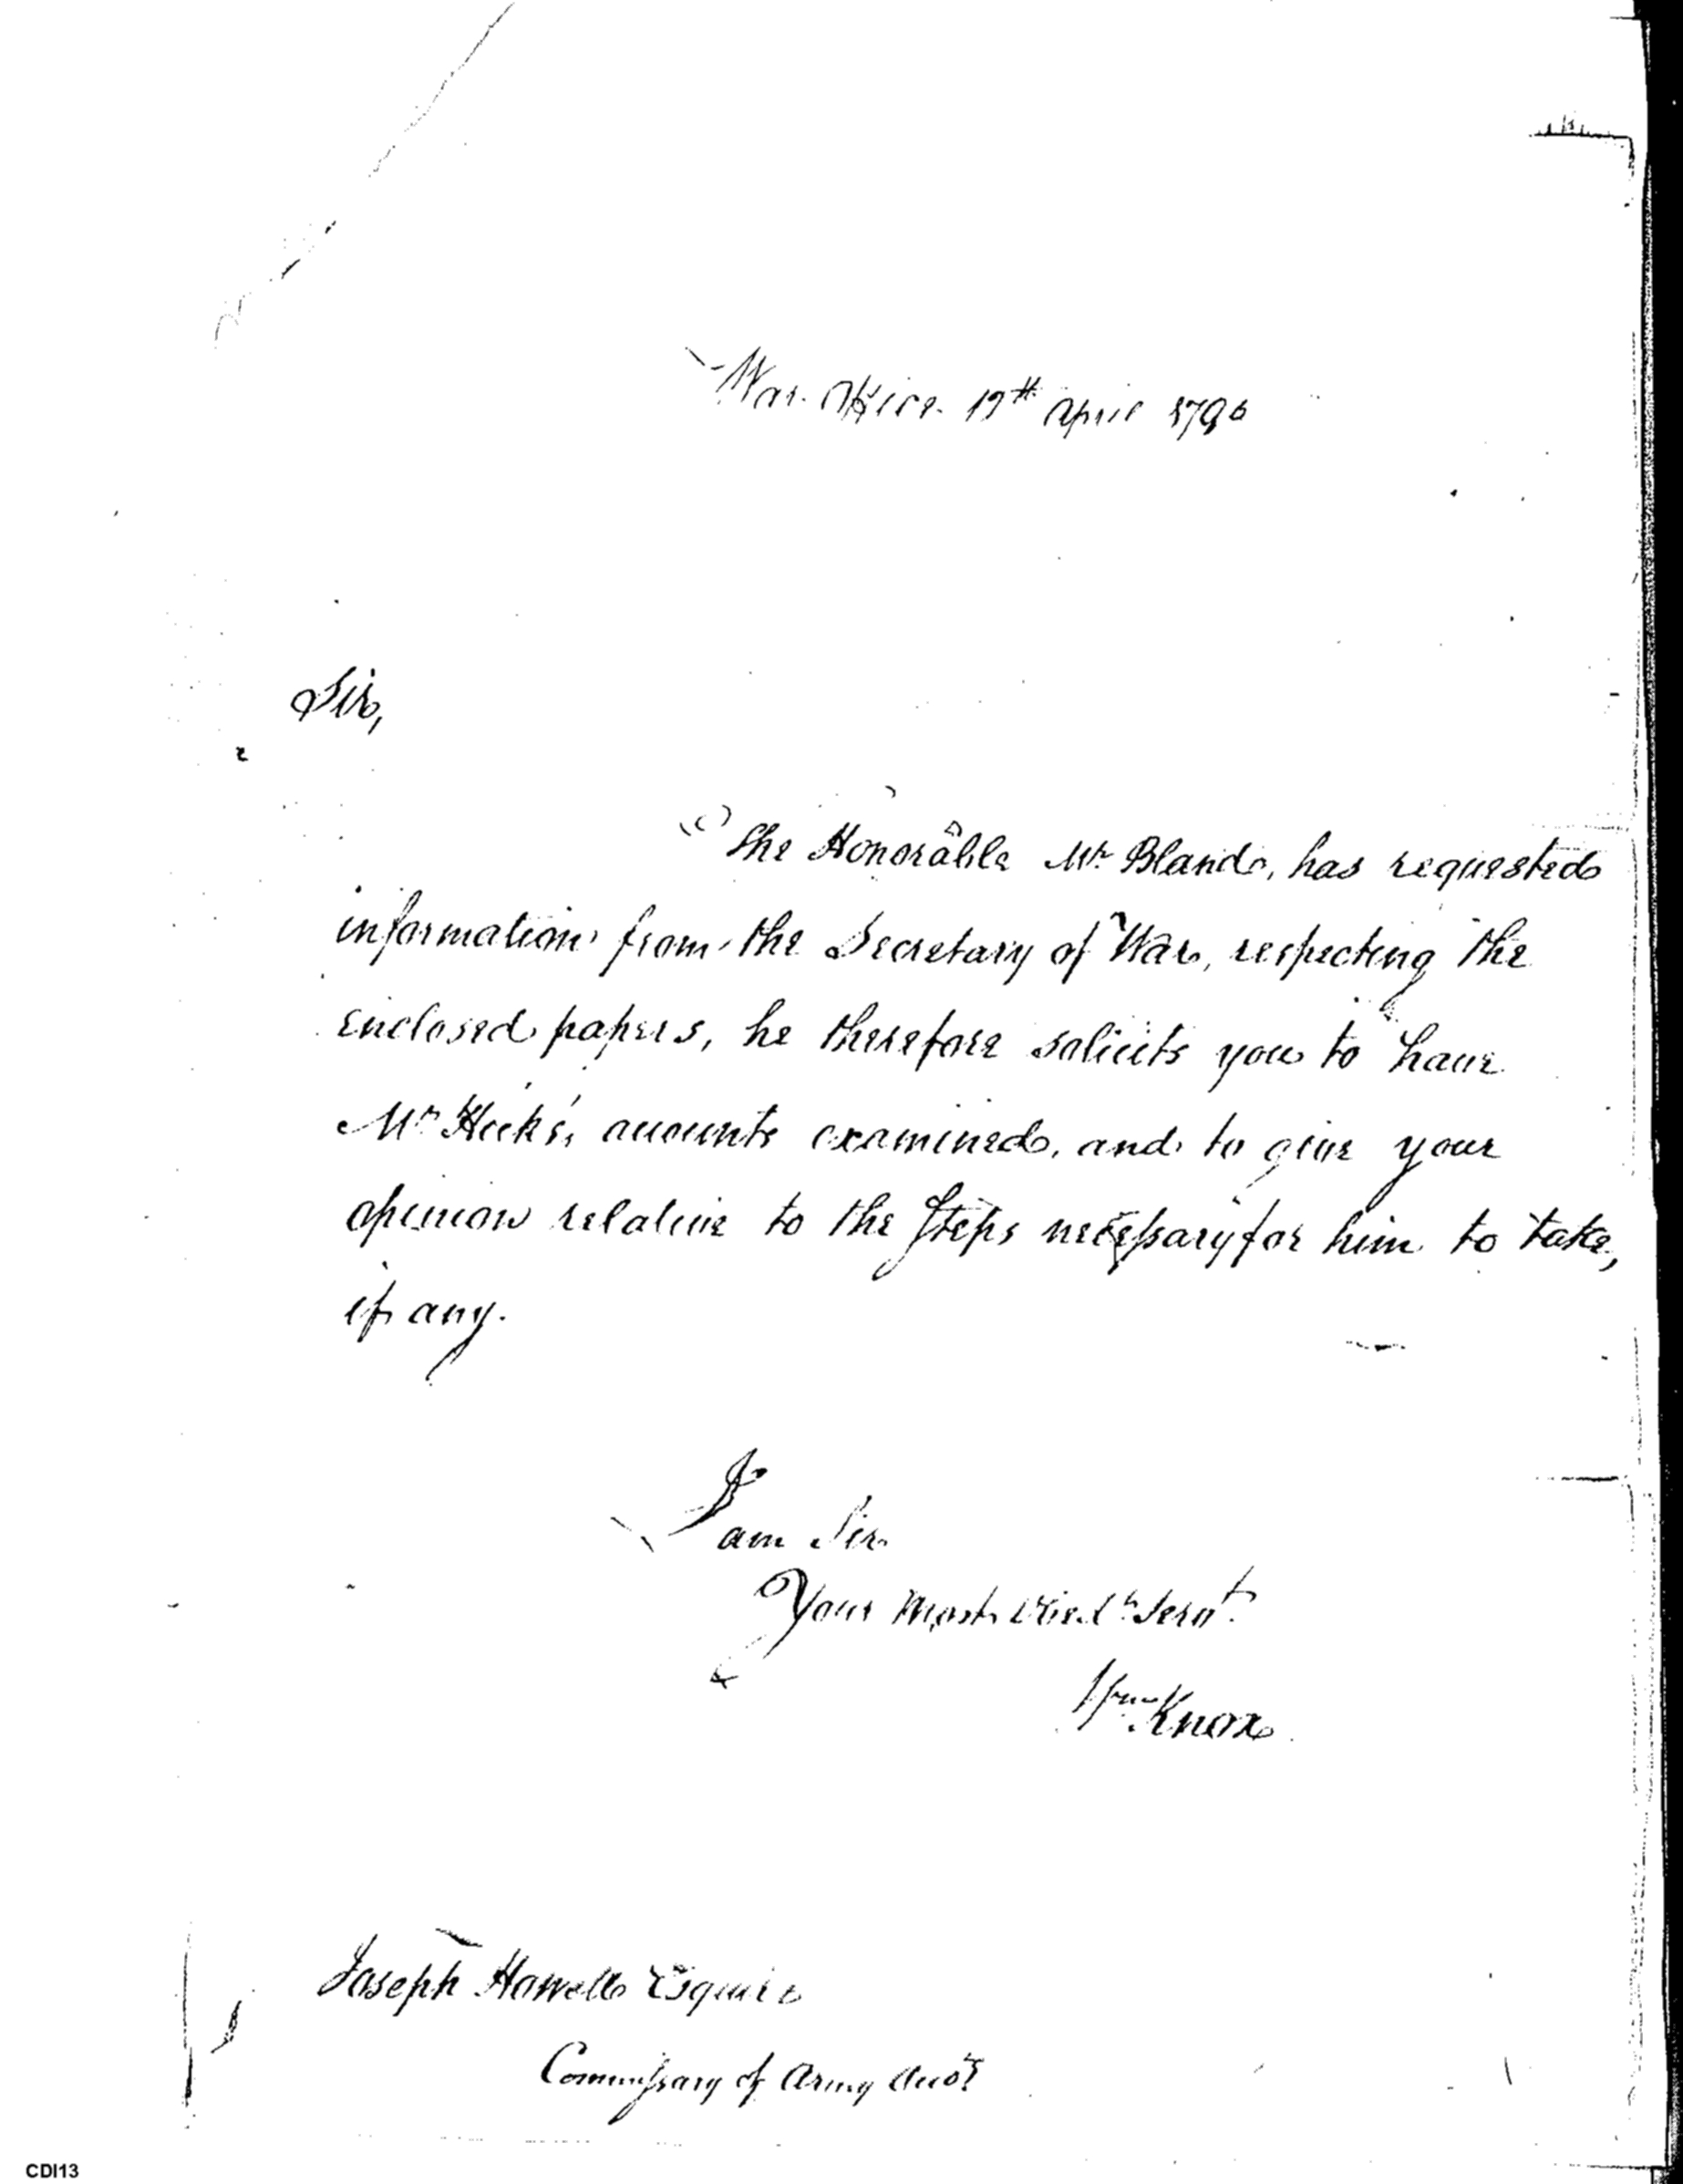 War Office 19th April 1790
Sir,
The Honorable Mr Bland, has requested
information from the Secretary of War, respecting the
enclosed papers, he therefore solicits you to have
Mr Hicks's accounts examined, and to give your
opinion relative to the Steps necessary for him to take,
if any.
I am Sir
Your Most Obedt Servt
Wm Knox
Joseph Howell Esquire
Commissary of Army Accots
CDI13